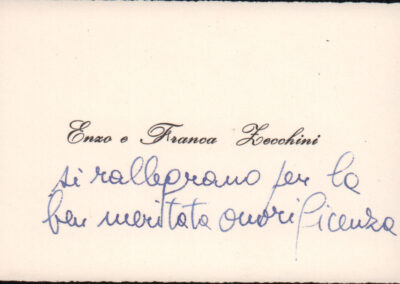 Enzo e Franca Zecchini
si rallegrano per la
ben meritata onorificenza